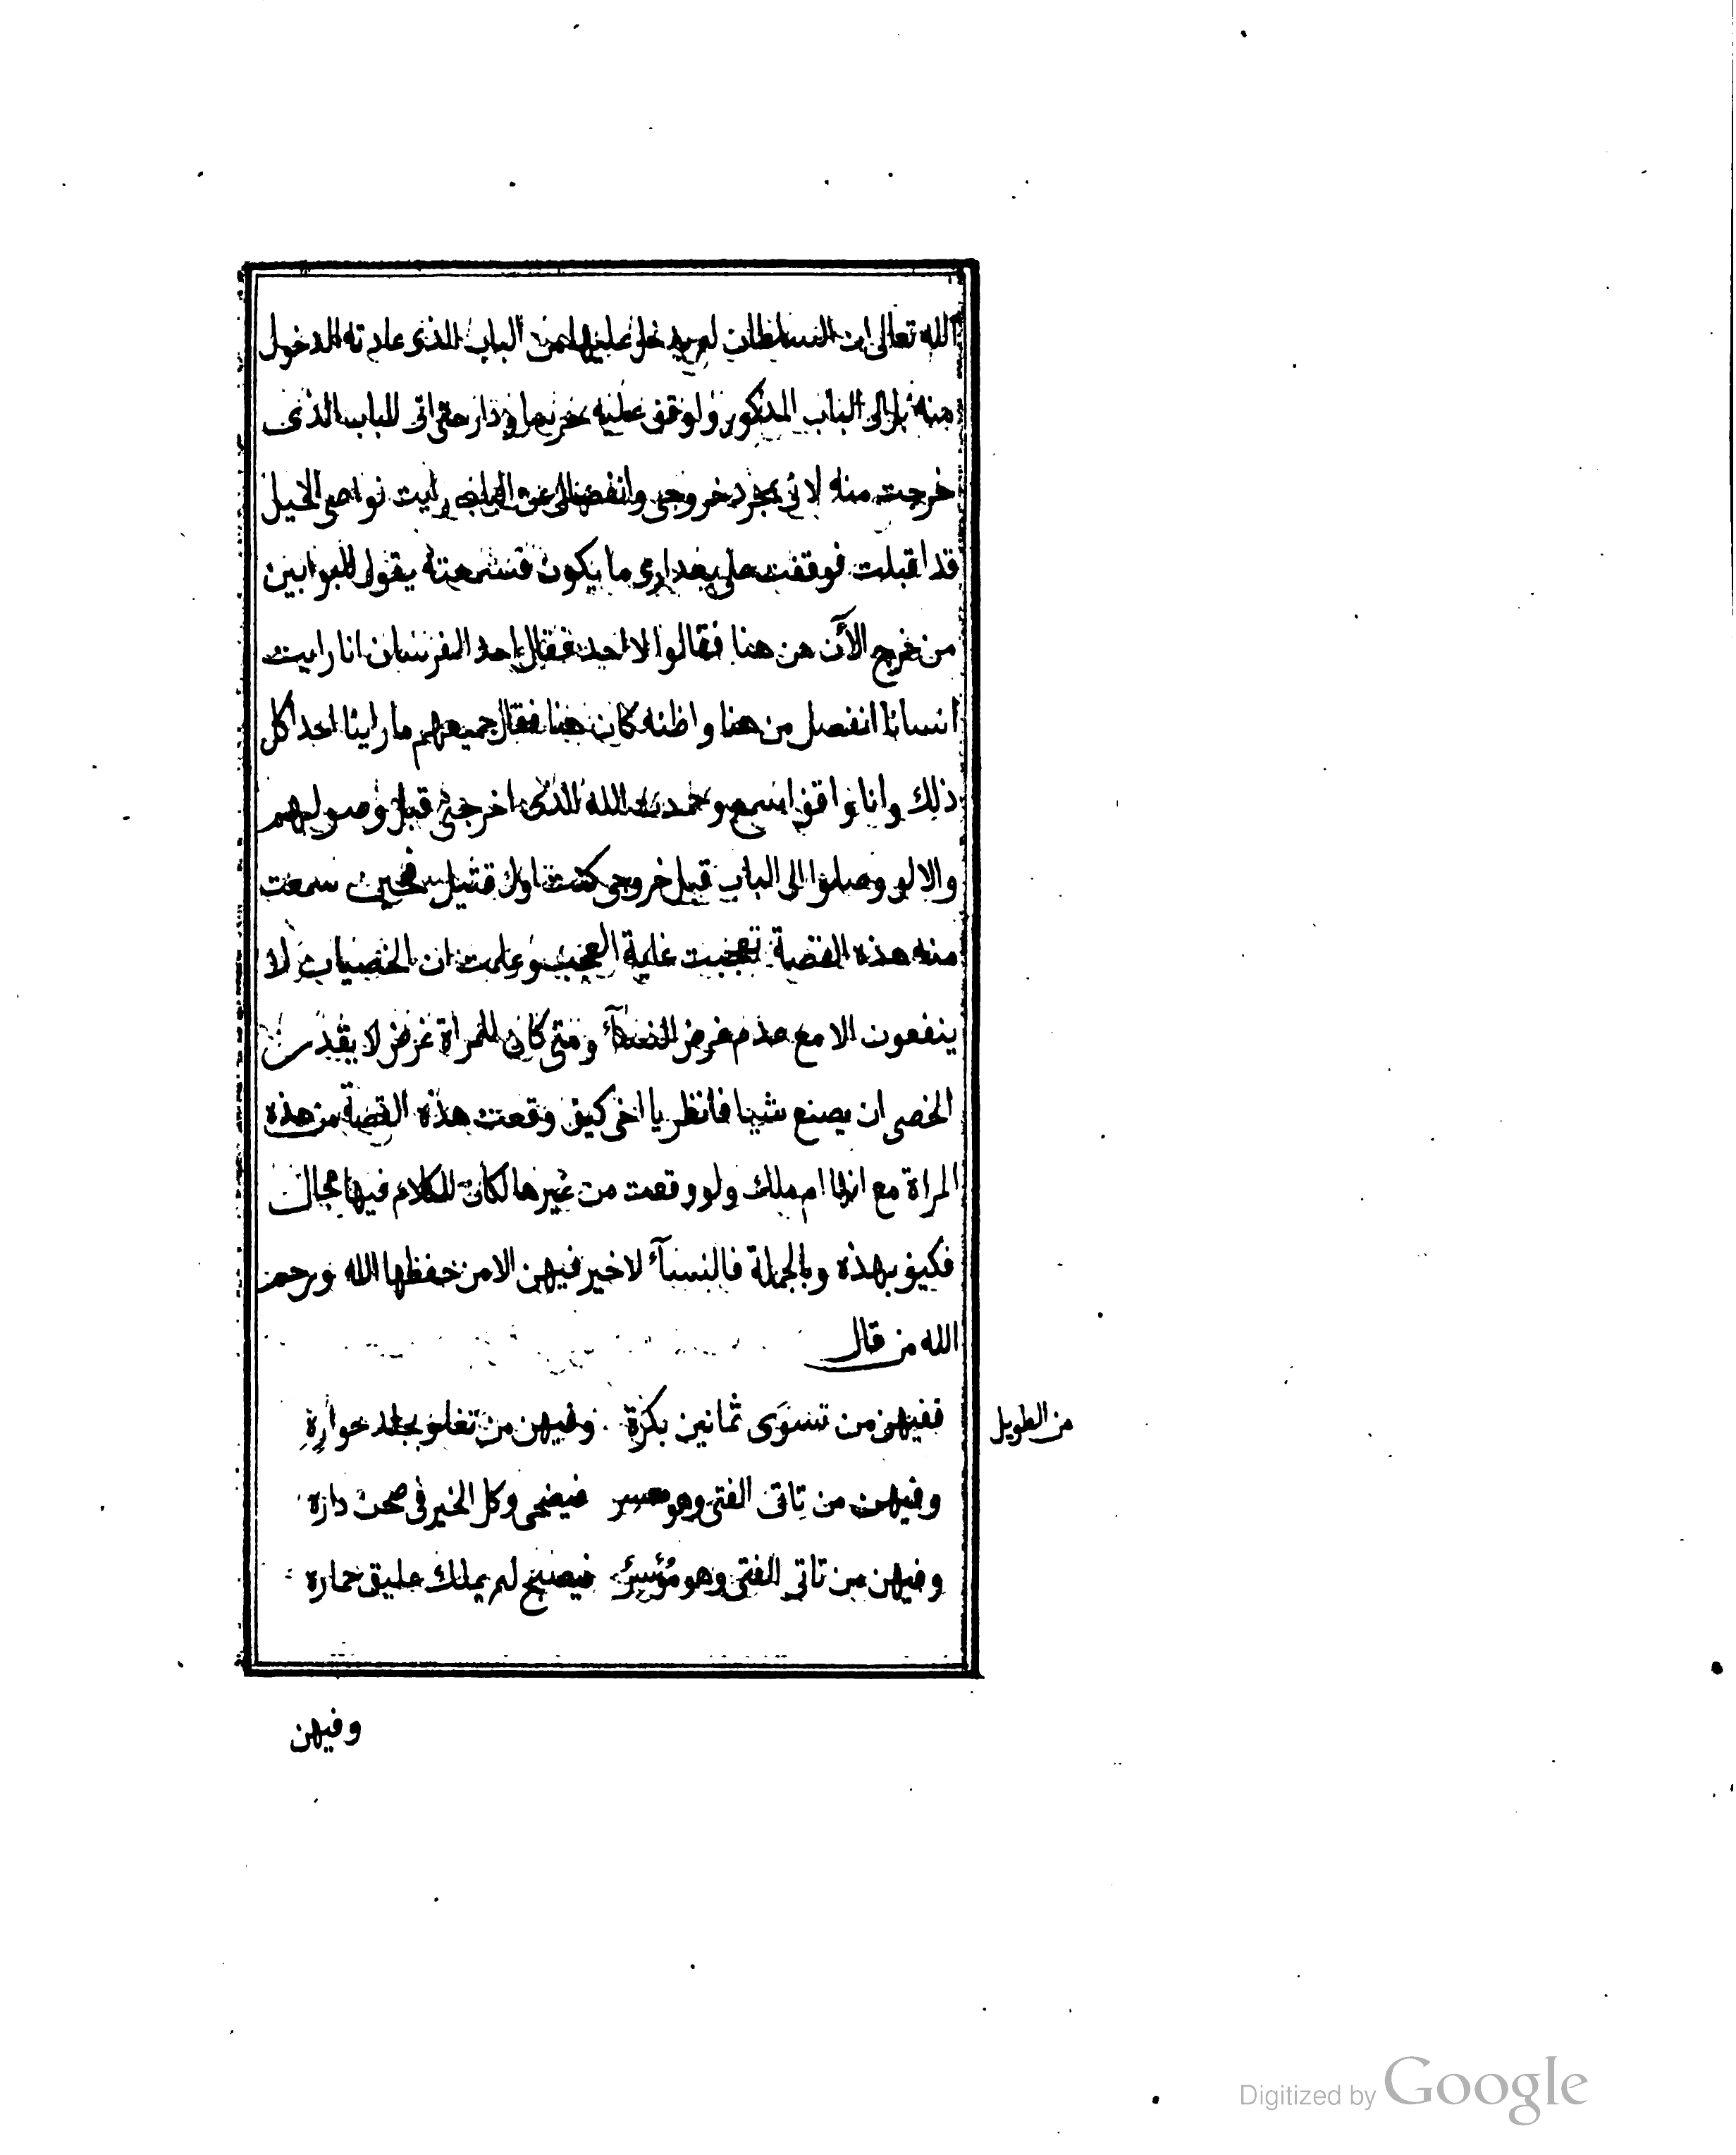 الله تعالى ان السلطان لم يدخل عليها من الباب الذى عادته الدخول
منه بل الى الباب المذكور ولو قف عليه خر دار حتى اتى للباب الذى
خرجت منه لانى بمجرد خروجى وانفصالى عن الباب رايت نواصى الخيل
قد اقبلت فوقفت على بعد ارى ما يكون فسمعته يقول للبوابين
من خرج الآن من هنا فقالوا لا احد فقال احد الفرسان انا رايت
انسانا انفصل من هنا واظنه كان هنا فقال جميعهم ما راينا احدا كل
ذلك وانا واقف اسمع وحمدت الله الذى اخرجنى قبل وصولهم
والا لو وصلوا الى الباب قبل خروجى كنت اول قتيل فحين سمعت
منه هذه القصة تعجبت غاية العجب وعلمت ان الخصيان لا
ينفعون الا مع عدم غرض النسآء ومتى كان للمراة غرض لا يقدر
الخصى ان يصنع شيا فانظر يا اخى كيف وقعت هذه القصة من هذه
المراة مع انها ام ملك ولو وقعت من غيرها لكان للكلام فيها مجال
فكيف بهذه وبالجملة فالنسآء لا خير فيهن الا من حفظها الله ورحم
الله من قال
ففيهن من تسوَى ثمانين بكرة وفيهن من تغلو بجلد حوارِهِ
وفيهن من تاتى الفتى وهو معسر فيضحى وكل الخير فى صحن داره
وفيهن من تاتى الفتى وهو مُؤْسِرٌ فيصبح لم يملك عليق حماره
من الطويل
وفيهن
Digitized by Google